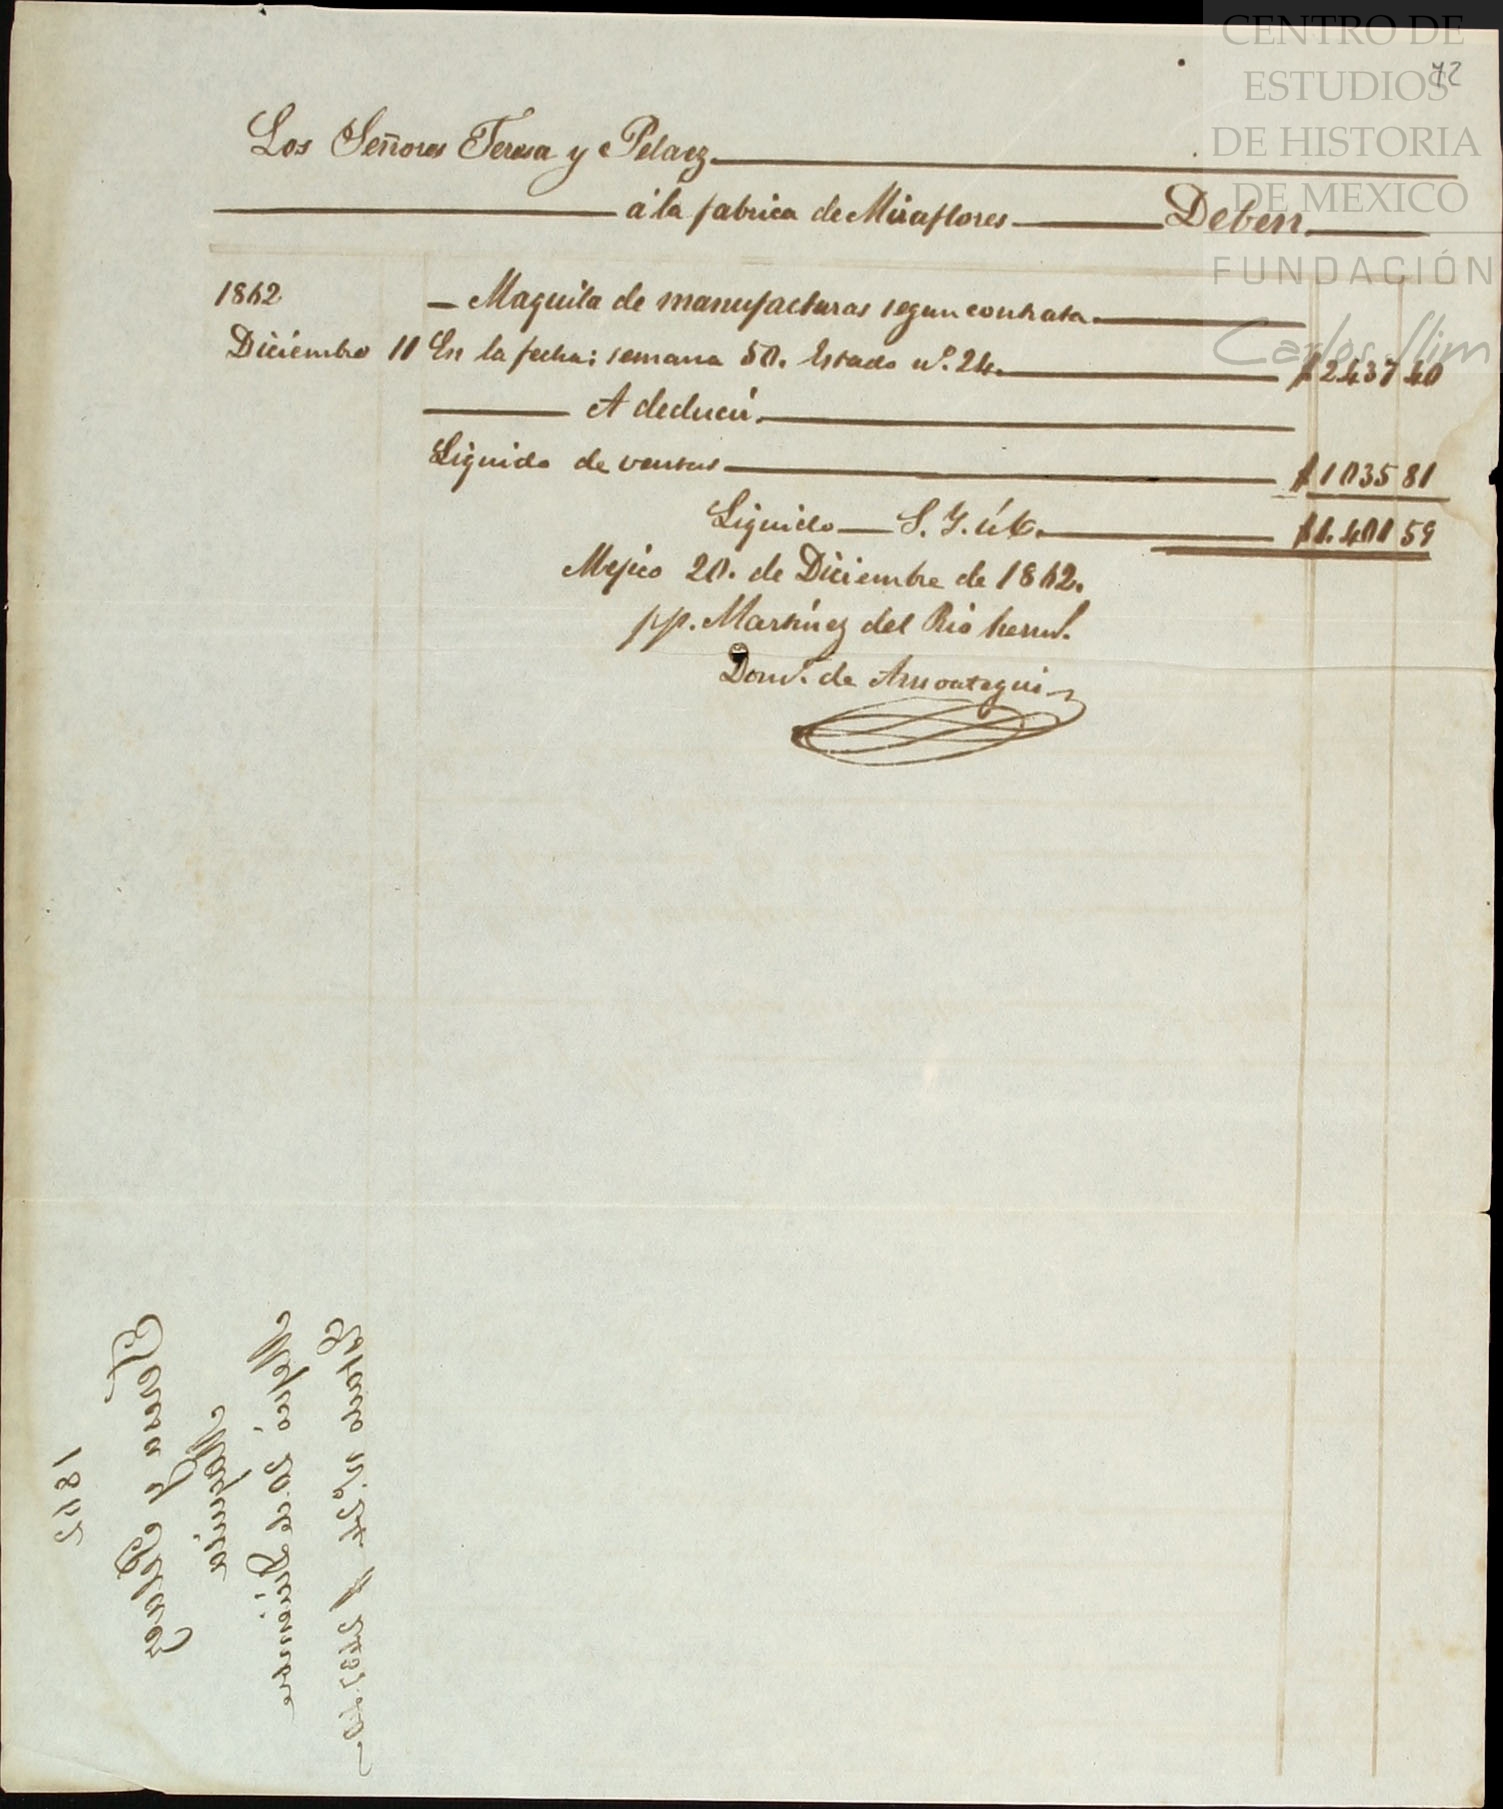 72
Los Señores Teresa y Pelaez
á la fabrica de Miraflores Deben
1862 Maquila de manufacturas segun contrata
Diciembre 11 En la fecha: semana 50. Estado nº. 24. $ 2437 40
A deducir
Liquido de ventas $ 1035 81
Liquido S. Y. ú O. $ 1.401 59
Mejico 20. de Diciembre de 1862.
pp. Martinez del Rio herms.
Domo. de Amoategui
1862
Teresa y Pelaez
Maquila
Mejico 20. de Diciembre
Estado nº. 24 $ 2437.40
CENTRO DE
ESTUDIOS
DE HISTORIA
DE MEXICO
FUNDACIÓN
Carlos Slim